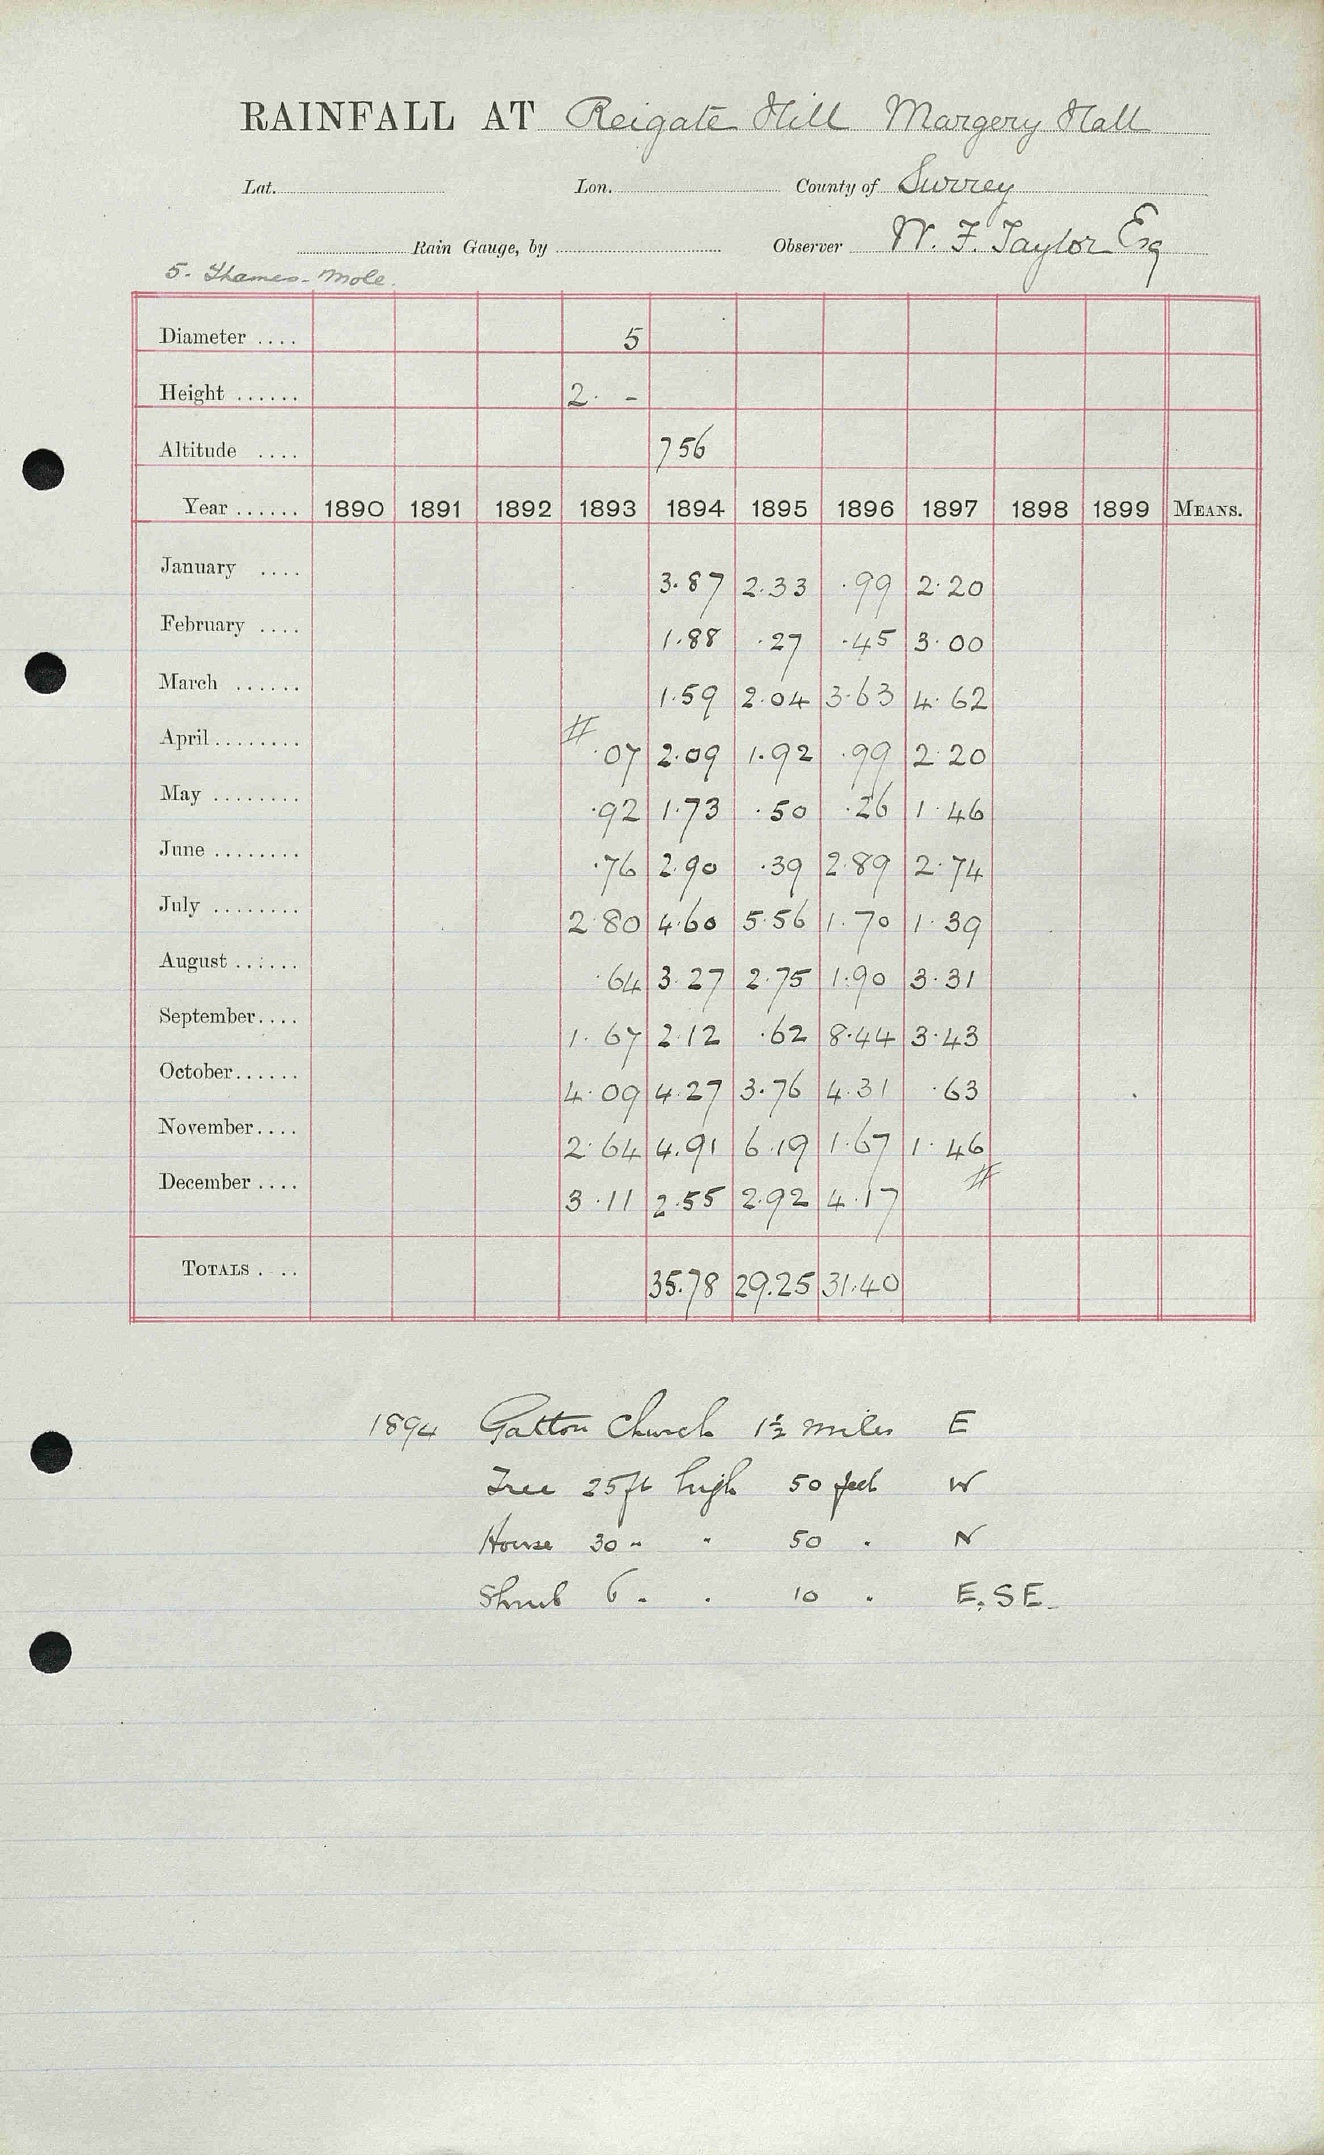 RAINFALL AT Reigate Hill Margery Hall
Lat. Lon. County of Surrey
Rain Gauge, by Observer W. F. Taylor Esq
5. Thames - Mole.
Diameter .... 5
Height ...... 2. -
Altitude .... 756
Year ...... 1890 1891 1892 1893 1894 1895 1896 1897 1898 1899 MEANS.
January .... 3.87 2.33 .99 2.20
February .... 1.88 .27 .45 3.00
March ...... 1.59 2.04 3.63 4.62
April........ # .07 2.09 1.92 .99 2.20
May ........ .92 1.73 .50 .26 1.46
June ........ .76 2.90 .39 2.89 2.74
July ........ 2.80 4.60 5.56 1.70 1.39
August ...... .64 3.27 2.75 1.90 3.31
September.... 1.67 2.12 .62 8.44 3.43
October...... 4.09 4.27 3.76 4.31 .63
November.... 2.64 4.91 6.19 1.67 1.46
December .... 3.11 2.55 2.92 4.17 #
TOTALS .... 35.78 29.25 31.40
1894 Gatton Church 1½ miles E
Tree 25ft high 50 feet W
House 30 " " 50 " N
Shrub 6 " " 10 " E. SE.